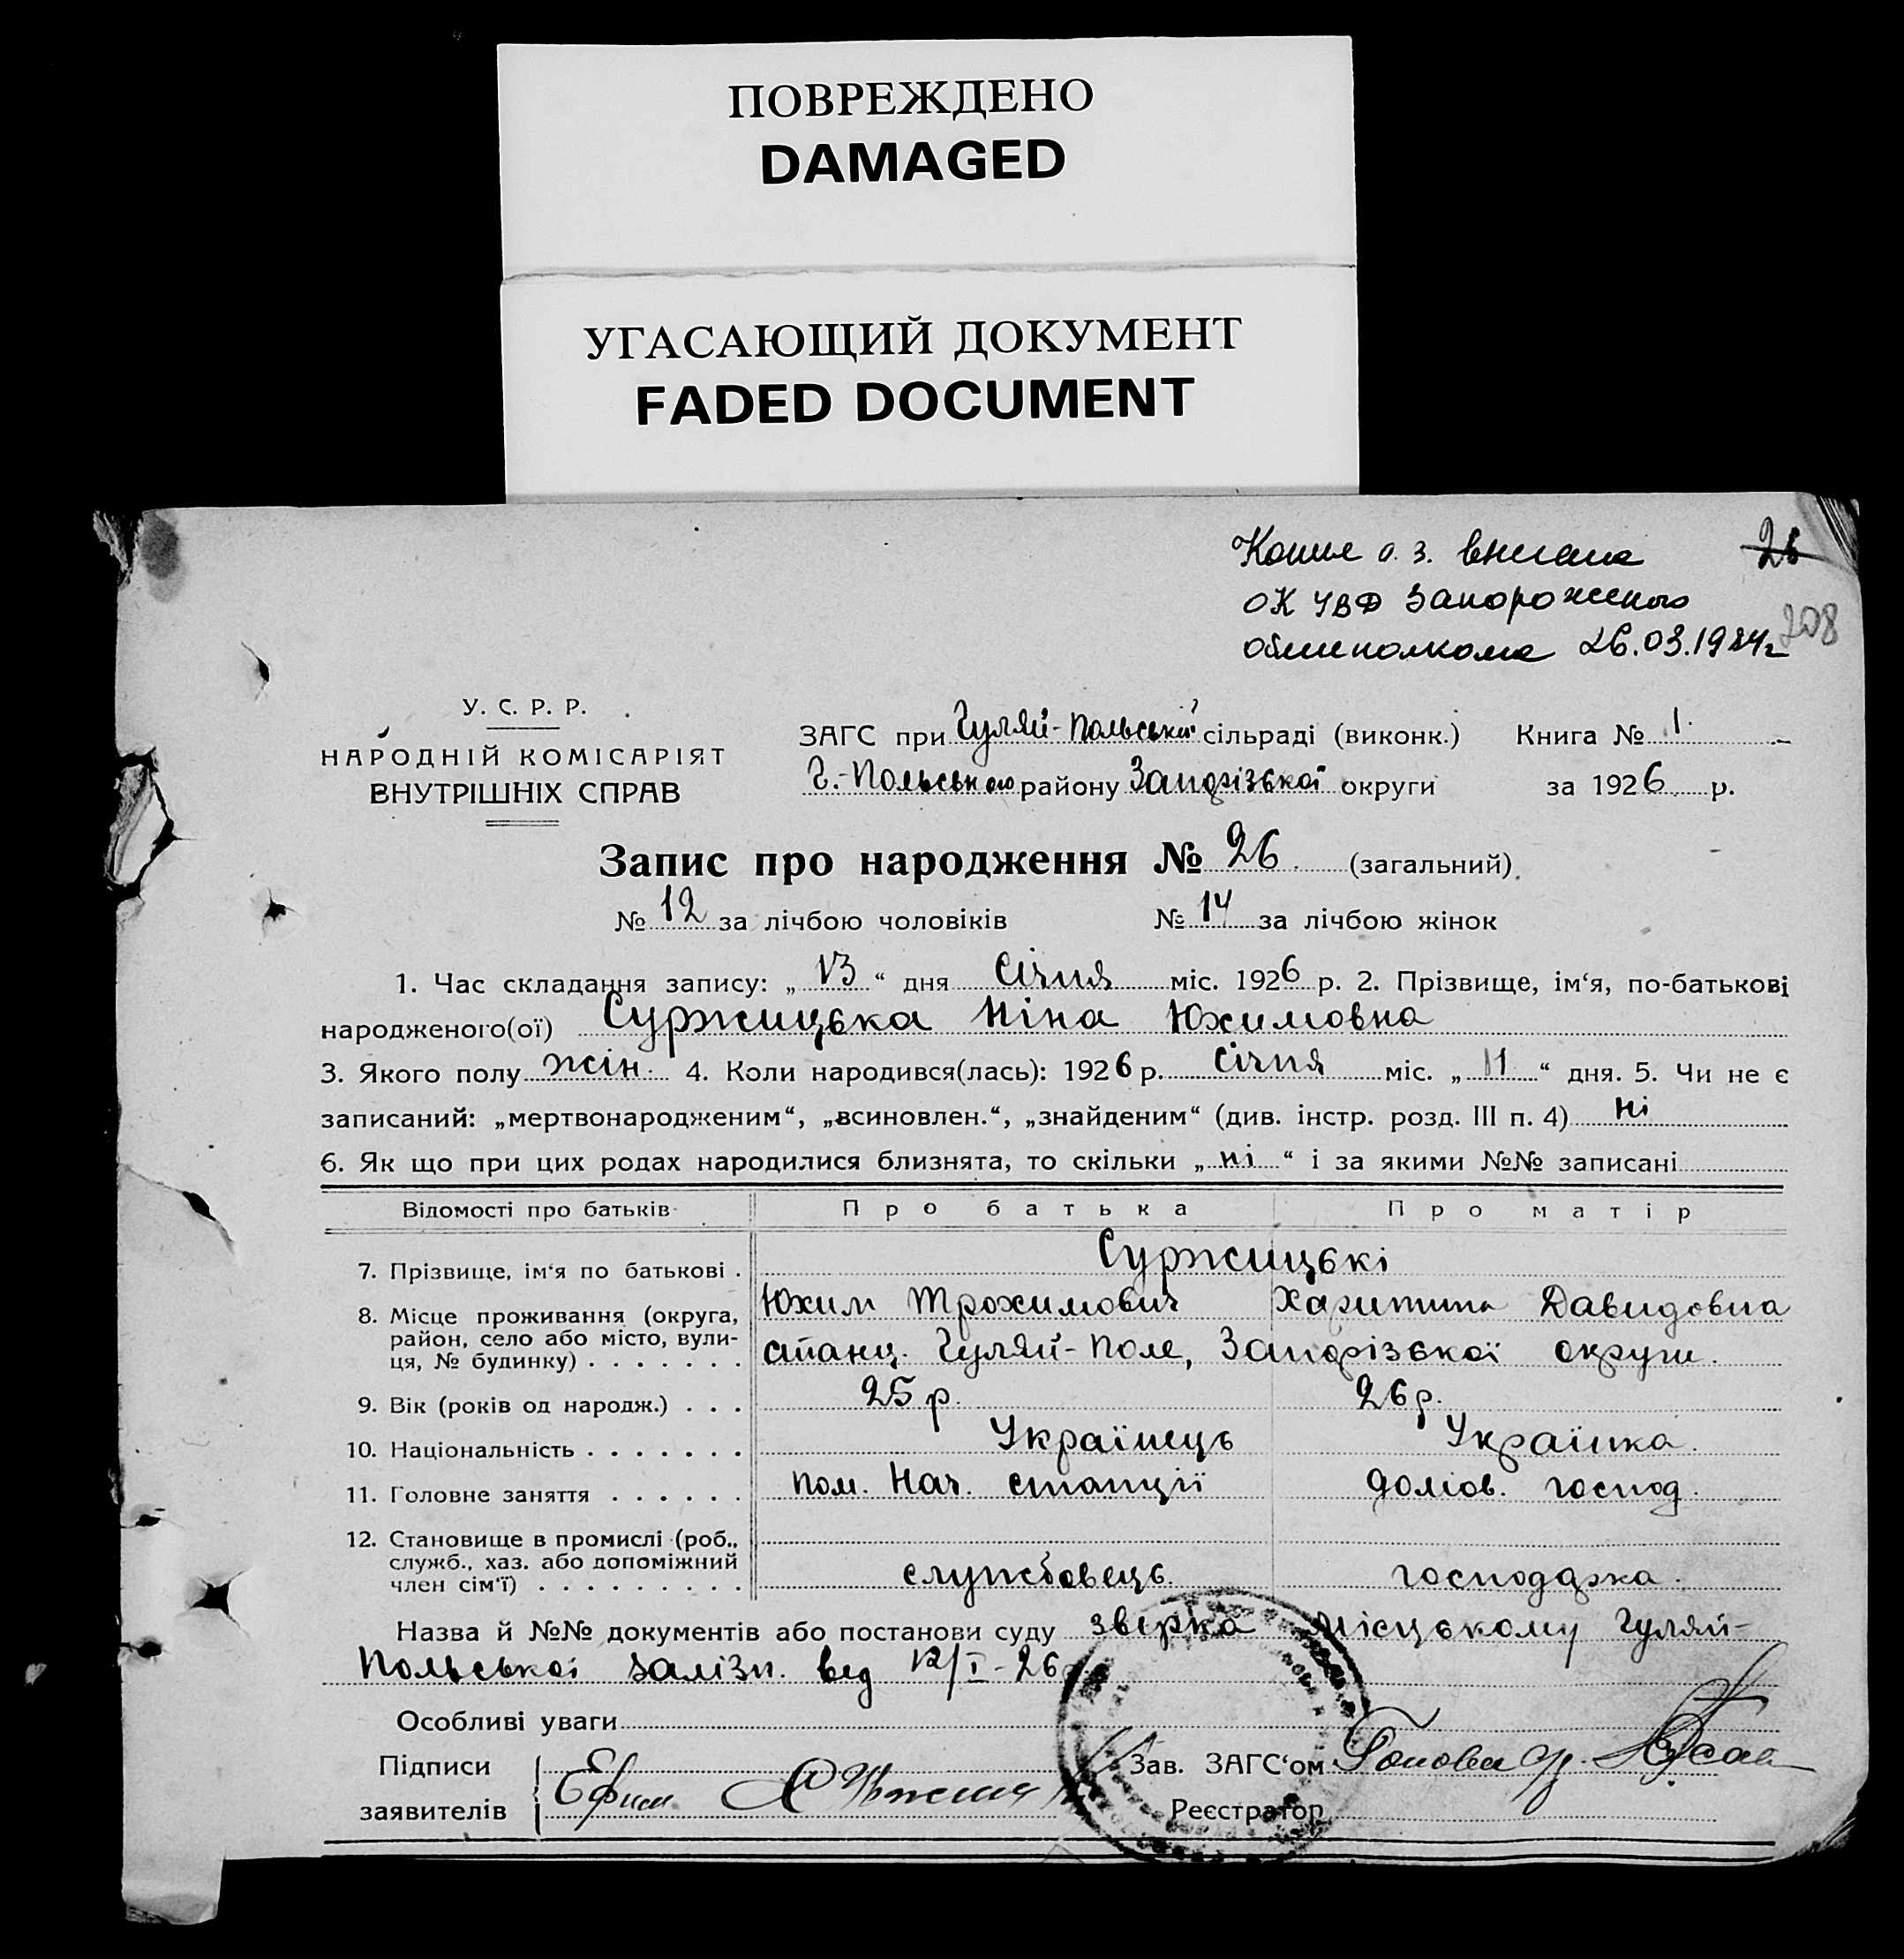 ПОВРЕЖДЕНО
DAMAGED
УГАСАЮЩИЙ ДОКУМЕНТ
FADED DOCUMENT
Копия а. з. 26
ОК УВД Запорожского
облисполкома 26.03.1984г 208
У. С. Р. Р.
НАРОДНІЙ КОМІСАРІЯТ
ВНУТРІШНІХ СПРАВ
ЗАГС при Гуляй-Польській сільраді (виконк.) Книга № 1
Г.-Польського району Запорізької округи за 1926 р.
Запис про народження № 26. (загальний).
№ 12 за лічбою чоловіків № 14 за лічбою жінок
1. Час складання запису: „ 13 “ дня Січня міс. 1926 р. 2. Прізвище, ім‘я, по-батькові
народженого(ої) Суржицька Ніна Юхимовна
3. Якого полу жін. 4. Коли народився(лась): 1926 р. Січня міс. „ 11 “ дня. 5. Чи не є
записаний: „мертвонародженим“, „всиновлен.“, „знайденим“ (див. інстр. розд. III п. 4) Ні
6. Як що при цих родах народилися близнята, то скільки „ ні “ і за якими №№ записані
Відомості про батьків Про батька Про матір
7. Прізвище, ім‘я по батькові . Суржицькі
8. Місце проживання (округа, Юхим Трохимович Харитина Давидовна
район, село або місто, вули-
ця, № будинку) . . . . . . . станц. Гуляй-Поле, Запорізької округи.
9. Вік (років од народж.) . . . 25 р. 26 р.
10. Національність . . . . . . . Українець Українка.
11. Головне заняття . . . . . . Пом. Нач. станції домов. господ.
12. Становище в промислі (роб.,
служб., хаз. або допоміжний
член сім‘ї) . . . . . . . . . службовець. господарка.
Назва й №№ документів або постанови суду звірка Місцькому Гуляй-
Польської заліз. від 12/I-26
Особливі уваги
Підписи Зав. ЗАГС‘ом
заявителів Ефим Реєстратор